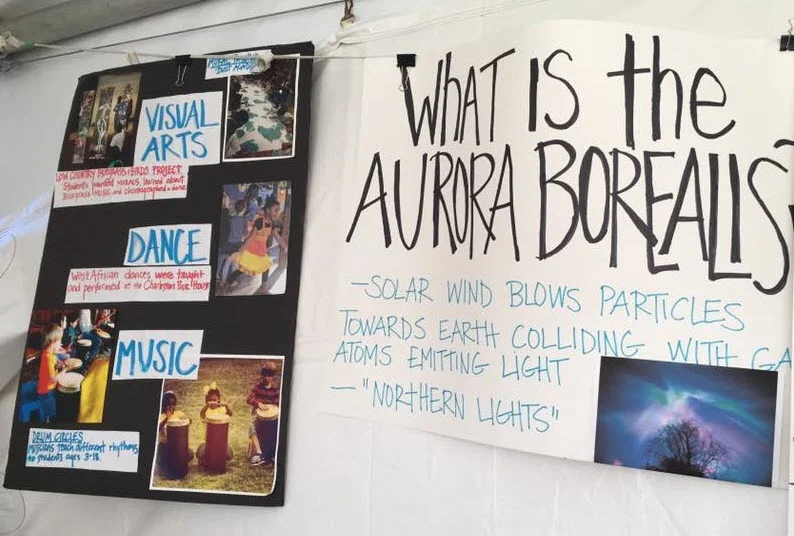 VISUAL
ARTS
LOW COUNTRY BLUEGRASS & BIRDS PROJECT
Students painted murals, learned about
Bluegrass music and choreographed a dance
DANCE
West African dances were taught
and performed at the Charleston Pour House
MUSIC
DRUM CIRCLES
Musicians teach different rhythms
to students ages 3-18.
WhAT IS the
AURORA BOREALIS
—SOLAR WIND BLOWS PARTICLES
TOWARDS EARTH COLLIDING WITH GA
ATOMS EMITTING LIGHT
— "NORtHERN LIGHTS"